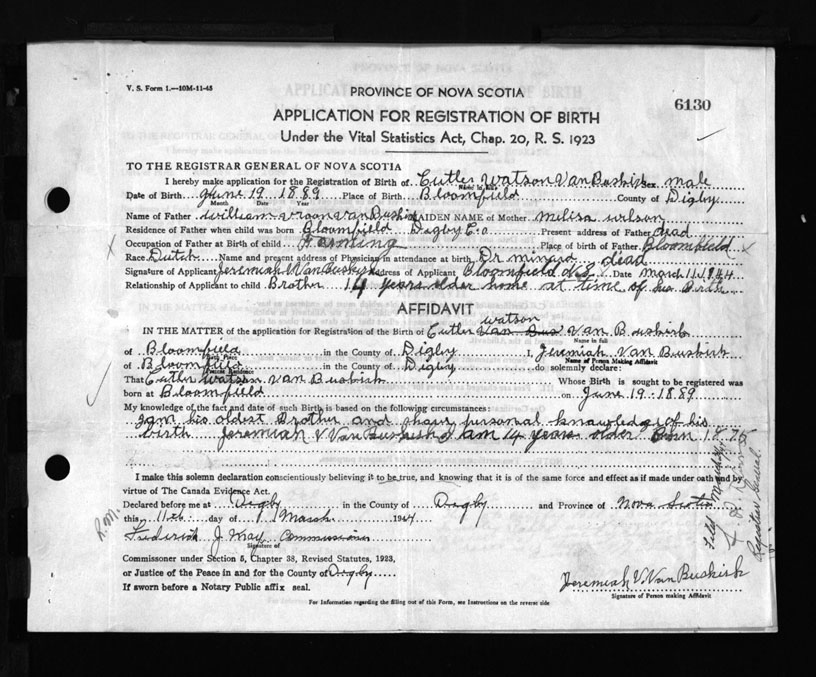 V. S. Form 1.—10M-11-45
PROVINCE OF NOVA SCOTIA
6130
APPLICATION FOR REGISTRATION OF BIRTH
Under the Vital Statistics Act, Chap. 20, R. S. 1923
TO THE REGISTRAR GENERAL OF NOVA SCOTIA
I hereby make application for the Registration of Birth of Cutler Watson Van Buskirk Sex male
Name in full
Date of Birth June 19 1889 Place of Birth Bloomfield County of Digby
Month Date Year
Name of Father William Van Buskirk MAIDEN NAME of Mother Melisa Wilson
Residence of Father when child was born Bloomfield Digby Co Present address of Father dead
Occupation of Father at Birth of child Farming Place of birth of Father Bloomfield
Race Dutch Name and present address of Physician in attendance at birth Dr minard dead
Signature of Applicant Jeremiah V Van Buskirk Address of Applicant Bloomfield N.S. Date March 11
Relationship of Applicant to child Brother 14 years older home at time of his Birth
AFFIDAVIT
watson
IN THE MATTER of the application for Registration of the Birth of Cutler Van Bus Van Buskirk
Name in full
of Bloomfield in the County of Digby I, Jeremiah Van Buskirk
Birth Place Name of Person Making Affidavit
of Bloomfield in the County of Digby do solemnly declare:
Present Residence
That Cutler Watson Van Buskirk Whose Birth is sought to be registered was
born at Bloomfield on June 19-1889
My knowledge of the fact and date of such Birth is based on the following circumstances:
I am his oldest Brother and have personal knowledge of his
birth Jeremiah V Van Buskirk I am 14 years older Born 1875
I make this solemn declaration conscientiously believing it to be true, and knowing that it is of the same force and effect as if made under oath and by
virtue of The Canada Evidence Act.
Declared before me at Digby in the County of Digby and Province of Nova Scotia
this 11th day of March 1944
R.M.
Frederick J May Commissioner
Signature of
Commissoner under Section 5, Chapter 38, Revised Statutes, 1923,
or Justice of the Peace in and for the County of Digby
If sworn before a Notary Public affix seal.
Jeremiah V. Van Buskirk
Signature of Person making Affidavit
For Information regarding the filling out of this Form, see Instructions on the reverse side
Registrar General